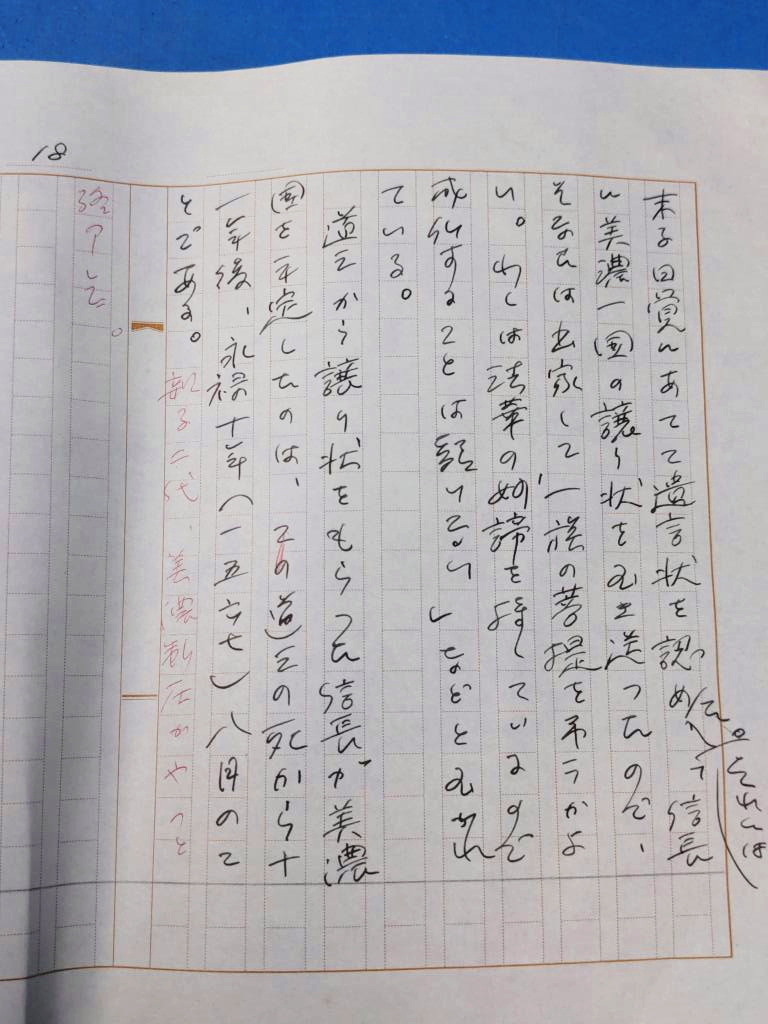 18
末子日覚にあてて遺言状を認めて信長
た。それには
に美濃一国の譲り状を送ったので、
そなたは出家して一族の菩提を弔うがよ
い。わしは法華の妙諦を持しているので
成仏することは疑いない」などと書かれ
ている。
道三から譲り状をもらった信長が美濃
国を平定したのは、この道三の死から十
一年後、永禄十年(一五六七)八月のこ
とである。親子二代、美濃かやっと
終了した。